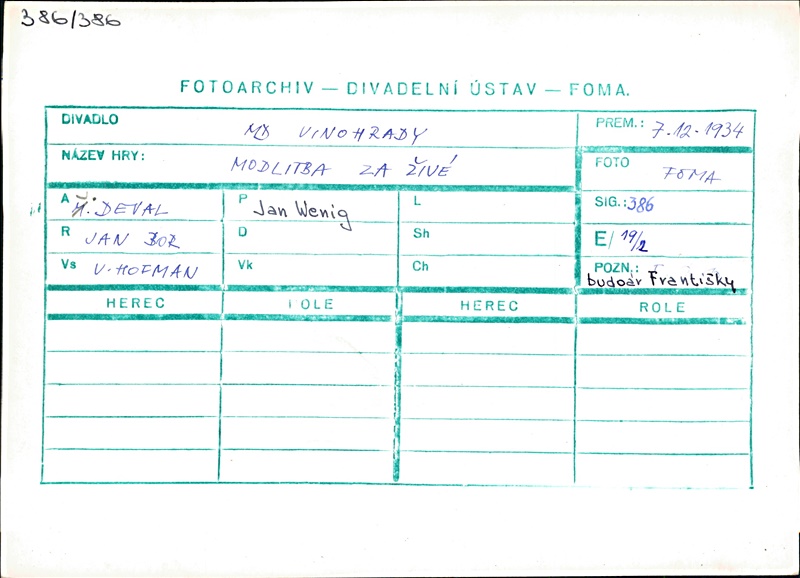 386/386
FOTOARCHIV — DIVADELNÍ ÚSTAV — FOMA.
DIVADLO MD VINOHRADY
PREM.: 7.12.1934
NÁZEV HRY: MODLITBA ZA ŽIVÉ
FOTO FOMA
A J. DEVAL
P Jan Wenig
L
SIG.: 386
R JAN BOR
D
Sh
E/ 19/2
Vs V. HOFMAN
Vk
Ch
POZN.: budoár Františky
HEREC ROLE HEREC ROLE